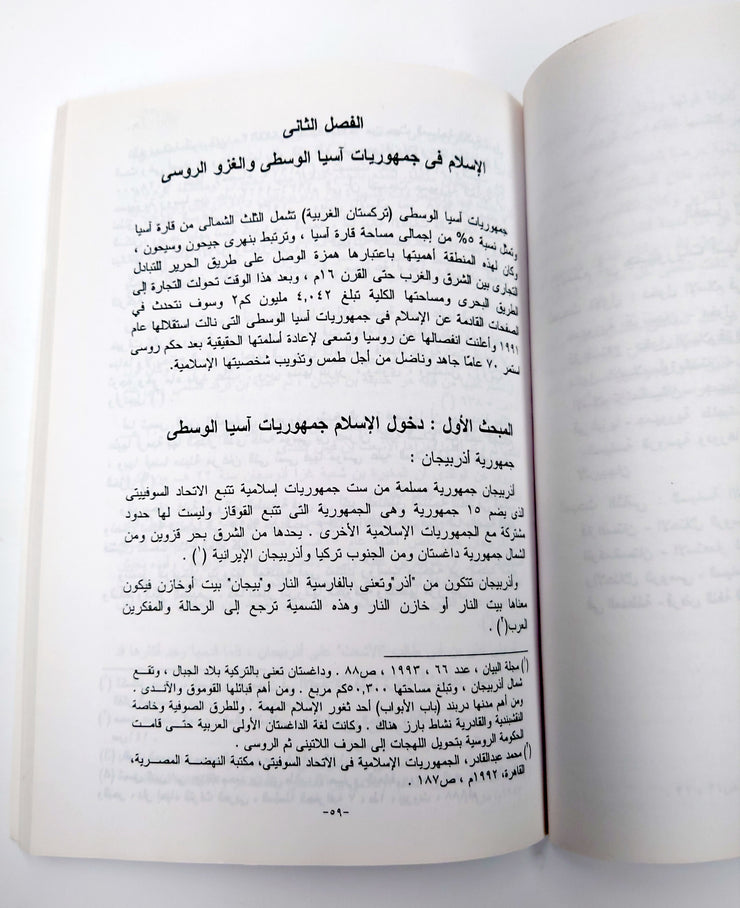 الفصل الثانى
الإسلام فى جمهوريات آسيا الوسطى والغزو الروسى
جمهوريات آسيا الوسطى (تركستان الغربية) تشمل الثلث الشمالى من قارة آسيا
وتمثل نسبة ٥% من إجمالى مساحة قارة آسيا ، وترتبط بنهرى جيحون وسيحون ،
وكان لهذه المنطقة أهميتها باعتبارها همزة الوصل على طريق الحرير للتبادل
التجارى بين الشرق والغرب حتى القرن ١٦م ، وبعد هذا الوقت تحولت التجارة إلى
الطريق البحرى ومساحتها الكلية تبلغ ٤,٠٤٢ مليون كم٢ وسوف نتحدث في
الصفحات القادمة عن الإسلام فى جمهوريات آسيا الوسطى التى نالت استقلالها عام
١٩٩١ وأعلنت انفصالها عن روسيا وتسعى لإعادة أسلمتها الحقيقية بعد حكم روسى
استمر ٧٠ عامًا جاهد وناضل من أجل طمس وتذويب شخصيتها الإسلامية.
المبحث الأول : دخول الإسلام جمهوريات آسيا الوسطى
جمهورية أذربيجان :
أذربيجان جمهورية مسلمة من ست جمهوريات إسلامية تتبع الاتحاد السوفييتى
الذى يضم ١٥ جمهورية وهى الجمهورية التى تتبع القوقاز وليست لها حدود
مشتركة مع الجمهوريات الإسلامية الأخرى . يحدها من الشرق بحر قزوين ومن
الشمال جمهورية داغستان ومن الجنوب تركيا وأذربيجان الإيرانية (١) .
وأذربيجان تتكون من "أذر"وتعنى بالفارسية النار و"بيجان" بيت أوخازن فيكون
معناها بيت النار أو خازن النار وهذه التسمية ترجع إلى الرحالة والمفكرين
العرب(٢) .
(١) مجلة البيان ، عدد ٦٦ ، ١٩٩٣ ، ص٨٨ . وداغستان تعنى بالتركية بلاد الجبال ، وتقع
شمال أذربيجان ، وتبلغ مساحتها ٥٠,٣٠٠كم مربع . ومن أهم قبائلها القوموق والآندى .
ومن أهم مدنها دربند (باب الأبواب) أحد ثغور الإسلام المهمة . وللطرق الصوفية وخاصة
النقشبندية والقادرية نشاط بارز هناك . وكانت لغة الداغستان الأولى العربية حتى قامت
الحكومة الروسية بتحويل اللهجات إلى الحرف اللاتينى ثم الروسى .
(٢) محمد عبدالقادر، الجمهوريات الإسلامية فى الاتحاد السوفيتى، مكتبة النهضة المصرية،
القاهرة، ١٩٩٢م ، ص١٨٧ .
-٥٩-